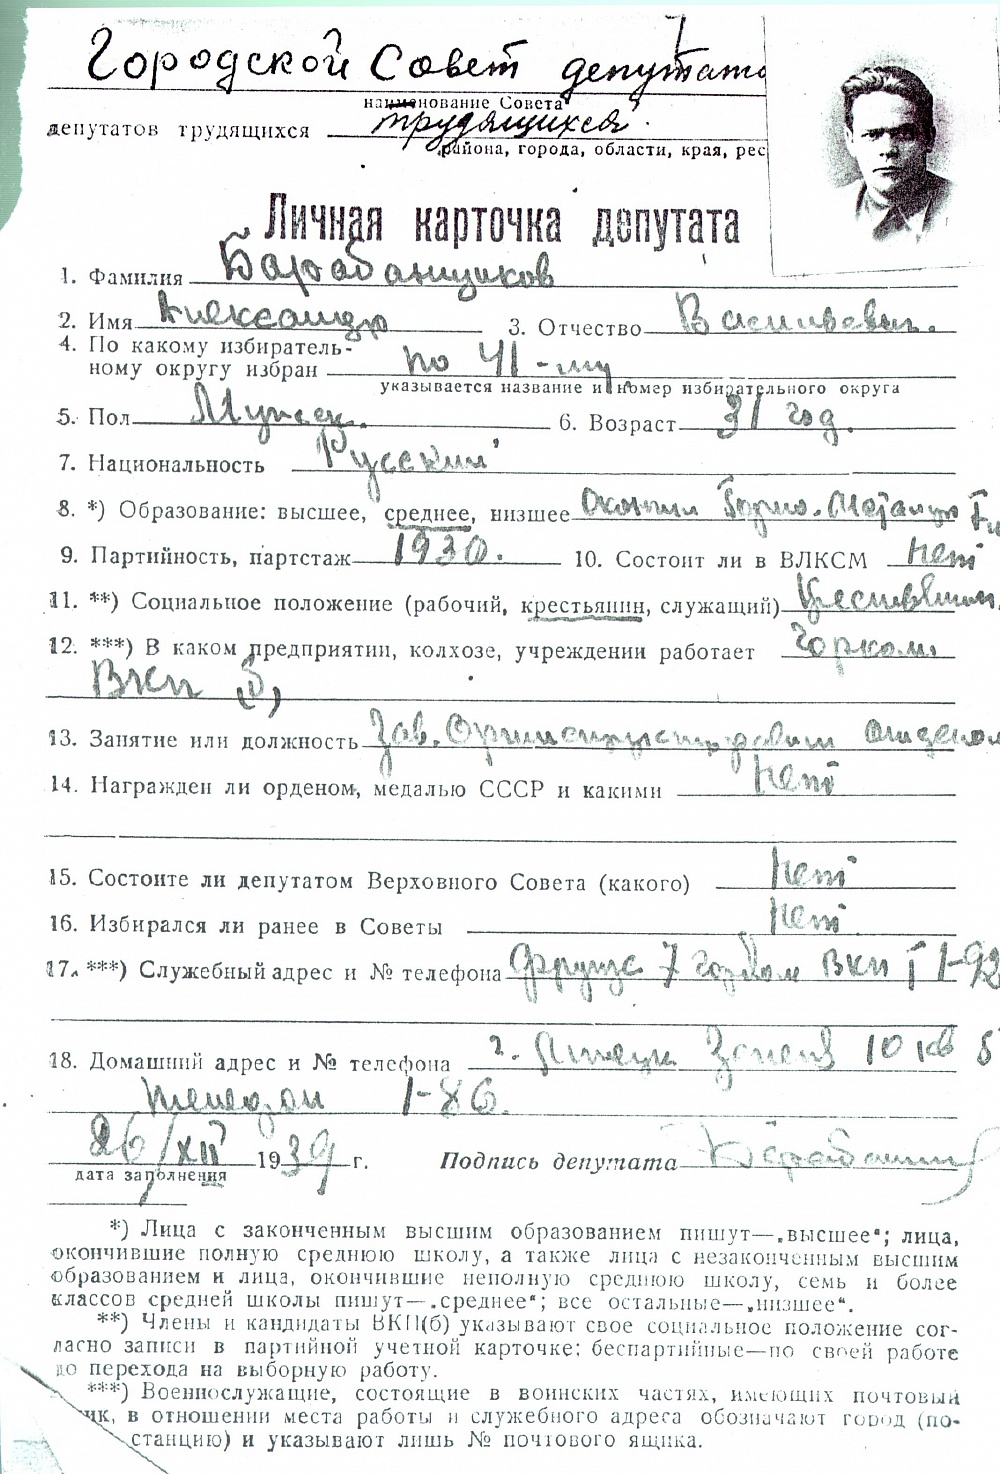 Городской Совет депутато
наименование Совета
депутатов трудящихся трудящихся.
района, города, области, края, рес
Личная карточка депутата
1. Фамилия Барабанщиков
2. Имя Александр 3. Отчество Васильевич.
4. По какому избиратель-
ному округу избран по 41-му
указывается название и номер избирательного округа
5. Пол Мужск. 6. Возраст 31 год.
7. Национальность Русский
8. *) Образование: высшее, среднее, низшее Окончил Горно-Металург
9. Партийность, партстаж 1930. 10. Состоит ли в ВЛКСМ нет
11. **) Социальное положение (рабочий, крестьянин, служащий) Крестьянин.
12. ***) В каком предприятии, колхозе, учреждении работает Горком
ВКП (б)
13. Занятие или должность Зав. Оргинструкторским отделом
14. Награжден ли орденом, медалью СССР и какими Нет
15. Состоите ли депутатом Верховного Совета (какого) Нет
16. Избирался ли ранее в Советы Нет
17. ***) Служебный адрес и № телефона Фрунзе 7 Горком ВКП т 1-92
18. Домашний адрес и № телефона г. Липецк 10 кв 5
телефон 1-86.
26/XII 1939 г. Подпись депутата Барабанщ
дата заполнения
*) Лица с законченным высшим образованием пишут—„высшее“; лица,
окончившие полную среднюю школу, а также лица с незаконченным высшим
образованием и лица, окончившие неполную среднюю школу, семь и более
классов средней школы пишут—„среднее“; все остальные—„низшее“.
**) Члены и кандидаты ВКП(б) указывают свое социальное положение сог-
ласно записи в партийной учетной карточке; беспартийные—по своей работе
до перехода на выборную работу.
***) Военнослужащие, состоящие в воинских частях, имеющих почтовый
ик, в отношении места работы и служебного адреса обозначают город (по-
станцию) и указывают лишь № почтового ящика.